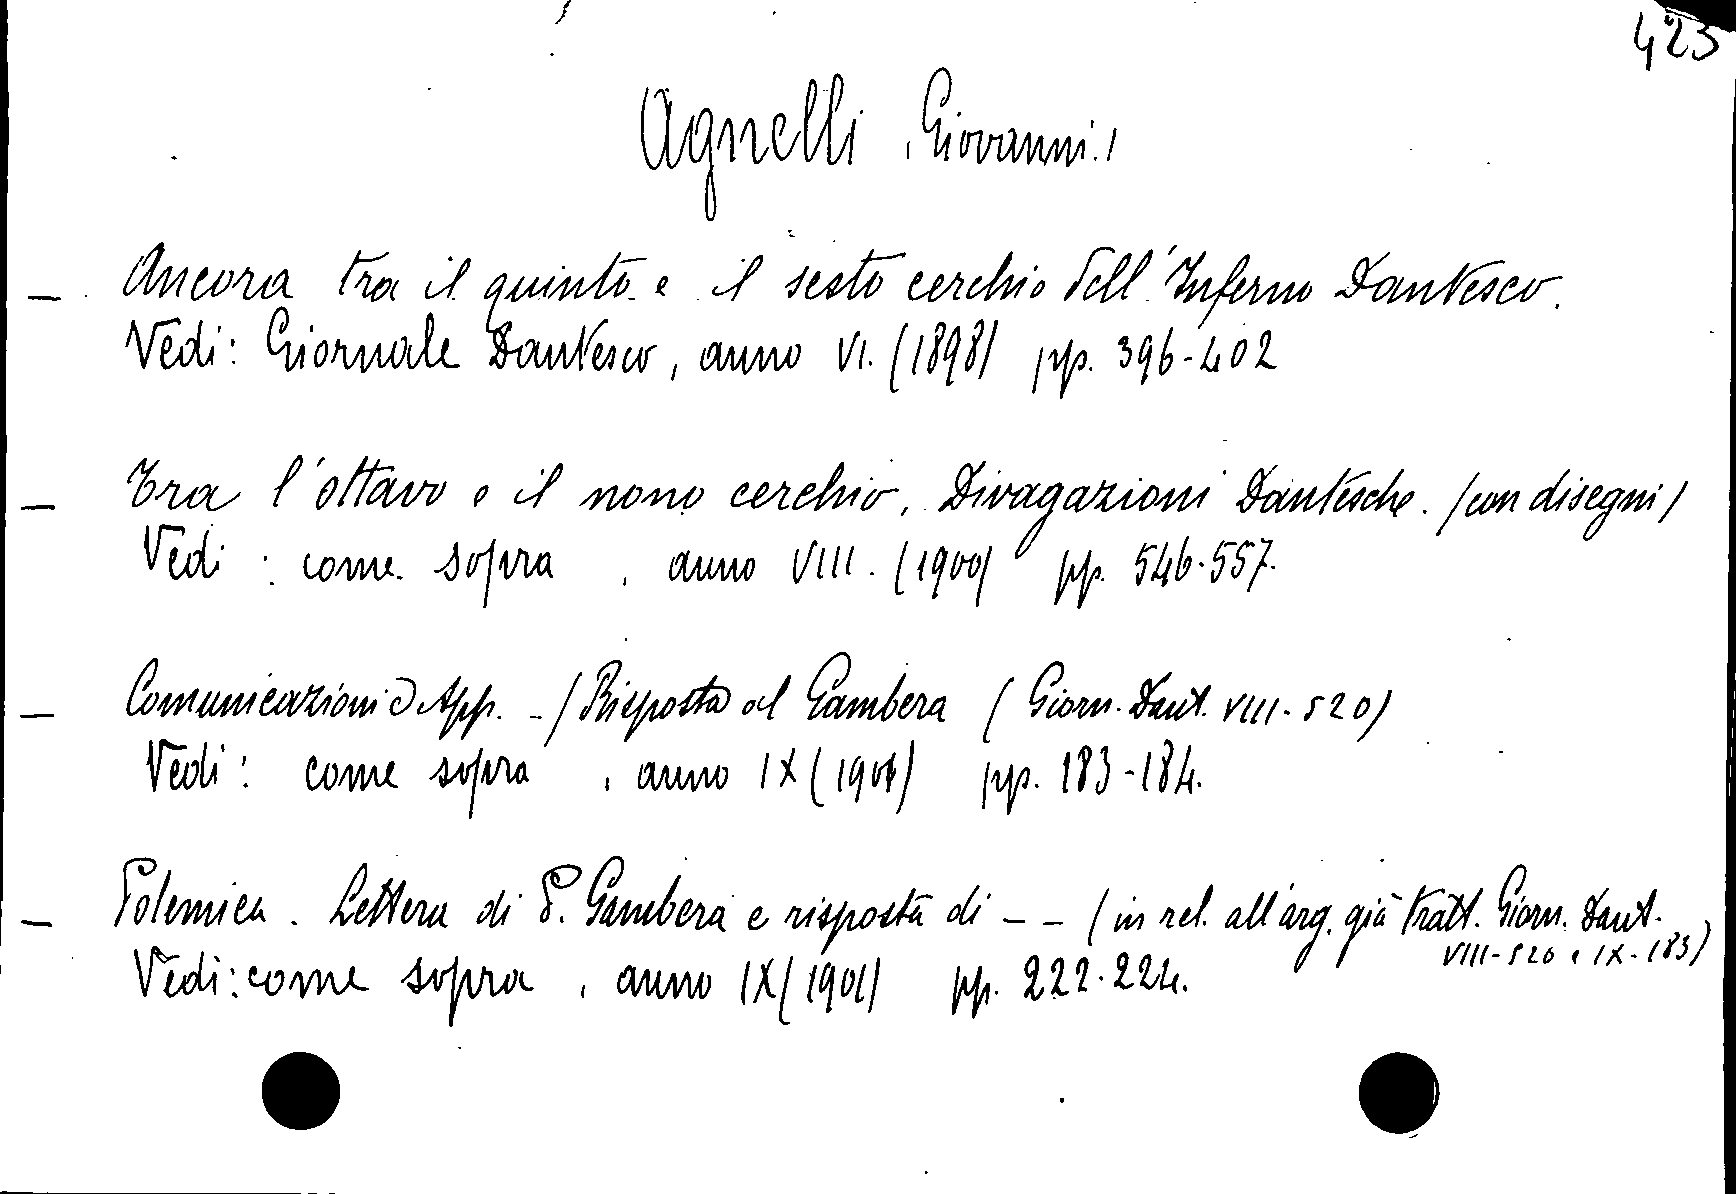 423
Agnelli (Giovanni)
— Ancora tra il quinto e il sesto cerchio dell'Inferno Dantesco.
Vedi: Giornale Dantesco, anno VI. (1898) pp. 396-402
— Tra l'ottavo e il nono cerchio. Divagazioni Dantesche. (con disegni)
Vedi: come sopra, anno VIII. (1900) pp. 546-557.
— Comunicazioni ed App. - (Risposta al Gambera (Giorn. Dant. VIII-520)
Vedi: come sopra, anno IX (1901) pp. 183-184.
— Polemica. Lettera di P. Gambera e risposta di — — (in rel. all'arg. già tratt. Giorn. Dant.
VIII-520 e IX-183)
Vedi: come sopra, anno IX (1901) pp. 222-224.